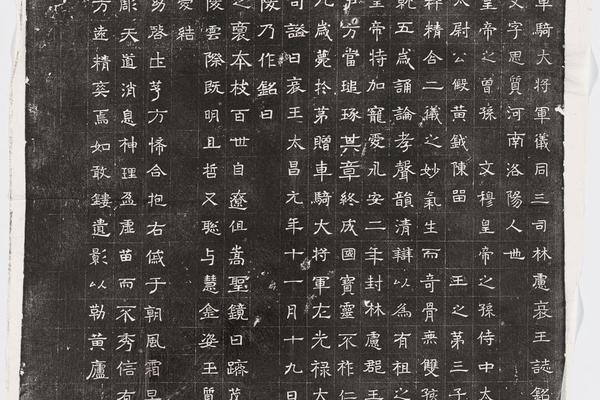 車騎大將軍儀同三司林慮哀王誌銘
文字思質河南洛陽人也
皇帝之曾孫 文穆皇帝之孫侍中太
太尉公假黃鉞陳留 王之第三子
粹精合二儀之妙氣生而奇骨無雙孩
五歲誦論孝聲韻清辯以為有祖之
皇帝特加寵愛永安二年封林慮郡王
方當琢其章終成國寶靈不祚仁
九歲薨於第贈車騎大將軍左光祿大
司諡曰哀王太昌元年十一月十九日
陵乃作銘曰
之本枝百世自遼徂嵩聖鏡日躋茂
陵雲際既明且哲又聡与慧金姿玉質
愛結
易啓方合抱右戚于朝風霜早
彫天道消息神理盈虛苗而不秀信有
方遠精焉如敢鏤遺影以勒黃廬